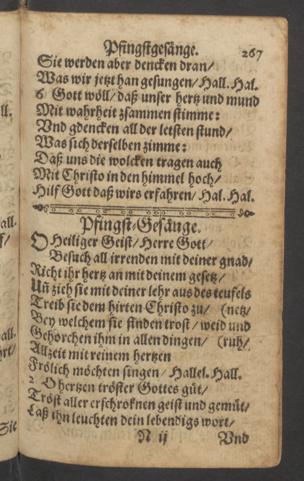 Pfingstgesänge. 267
Sie werden aber dencken dran/
Was wir jetzt han gesungen/ Hall. Hal.
6 Gott wöll/ daß unser hertz und mund
Mit wahrheit zsammen stimme:
Und gdencken all der letsten stund/
Was sich derselben zimme:
Daß uns die wolcken tragen auch
Mit Christo in den himmel hoch/
Hilf Gott daß wirs erfahren/ Hal. Hal.
Pfingst-Gesänge.
O Heiliger Geist/ Herre Gott/
Besuch all irrenden mit deiner gnad/
Richt ihr hertz an mit deinem gesetz/
Uñ zieh sie mit deiner lehr aus des teufels
Treib sie dem hirten Christo zu/ (netz/
Bey welchem sie finden trost/ weid und
Gehorchen ihm in allen dingen/ (ruh/
Allzeit mit reinem hertzen
Frölich möchten singen/ Hallel. Hall.
2 O hertzen tröster Gottes güt/
Tröst aller erschroknen geist und gemüt/
Laß ihn leuchten dein lebendigs wort/
N ij Und
ll.
all.
f/
all.
Sie